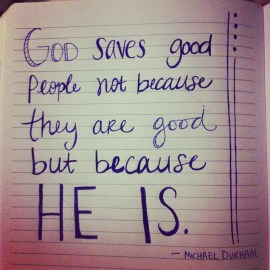 GOD saves good
people not because
they are good
but because
HE IS.
— MICHAEL DURHAM